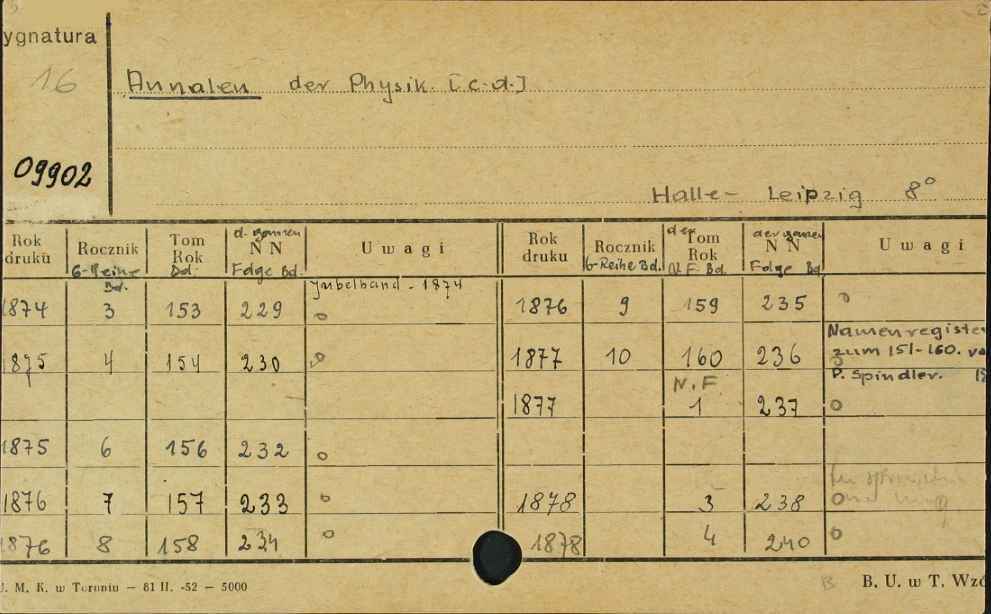 ygnatura
16
Annalen der Physik. [c.d.]
09902
Halle- Leipzig 8°
Rok druku Rocznik 6-Reihe Bd. Tom Rok Bd. d. ganzen N N Folge Bd. Uwagi Rok druku Rocznik 6-Reihe Bd. der Tom Rok N.F. Bd. der ganzen N N Folge Bd. Uwagi
Jubelband - 1874
1874 3 153 229 o 1876 9 159 235 o
Namenregiste
1875 4 154 230 o 1877 10 160 236 zum 151-160. vo
P. Spindler.
N.F
1877 1 237 o
1875 6 156 232 o
1876 7 157 233 o 1878 3 238 o
1876 8 158 234 o 1878 4 240 o
J. M. K. w Toruniu — 61 II. -52 — 5000
B
B. U. w T. Wzó